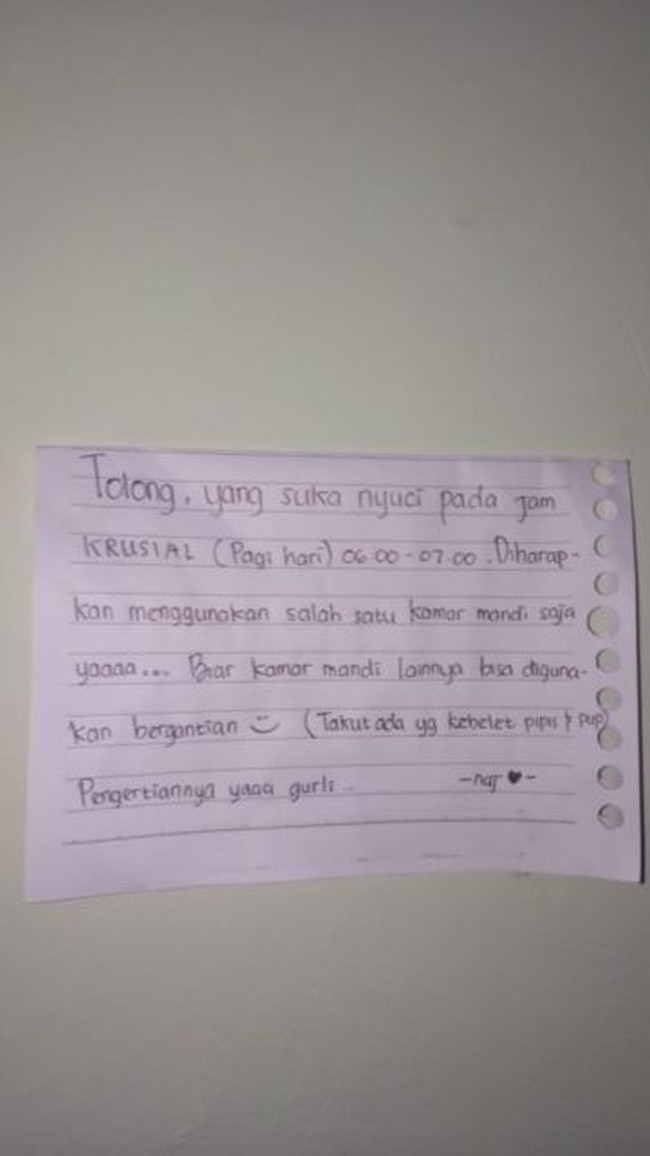 Tolong, yang suka nyuci pada jam
KRUSIAL (Pagi hari) 06.00-07.00. Diharap-
kan menggunakan salah satu kamar mandi saja
yaaaa... Biar kamar mandi lainnya bisa diguna-
kan bergantian (Takut ada yg kebelet pipis & pup)
Pengertiannya yaaa gurls..
-naj ♥-